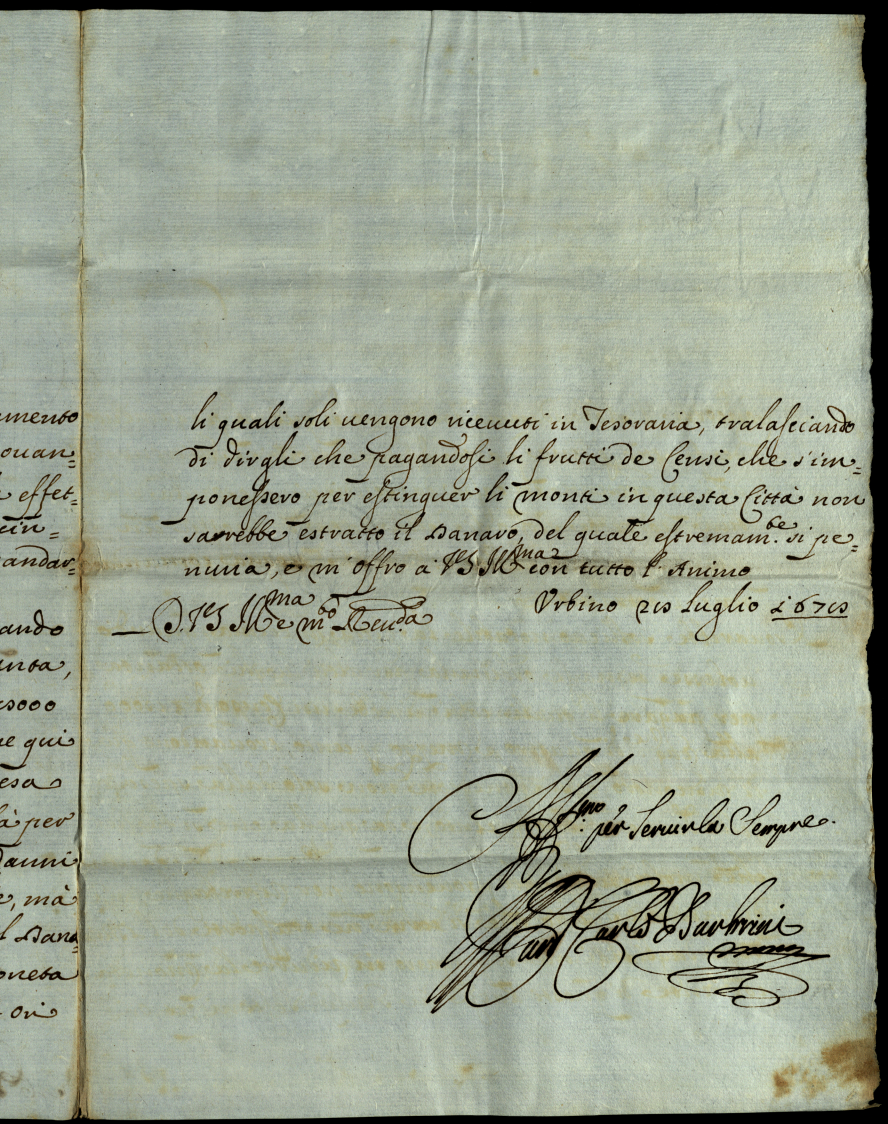 amento
ouan=
effet=
cin=
andar=
ando
unta,
5000
e qui
esa
à per
danni
e, mà
l Dana=
oneta
ori
li quali soli uengono riceuuti in Tesoraria, tralasciando
di dirgli che pagandosi li frutti de Censi, che s'im=
ponessero per estinguer li monti in questa Città non
sarrebbe estratto il Danaro, del quale estremam.te si pe=
nuria, e m'offro à VS Ill.ma con tutto l'Animo
D. VS Ill.ma e m.to Reu.da Urbino Luglio
Aff.mo per Seruirla Sempre.
Card Carlo Barberini